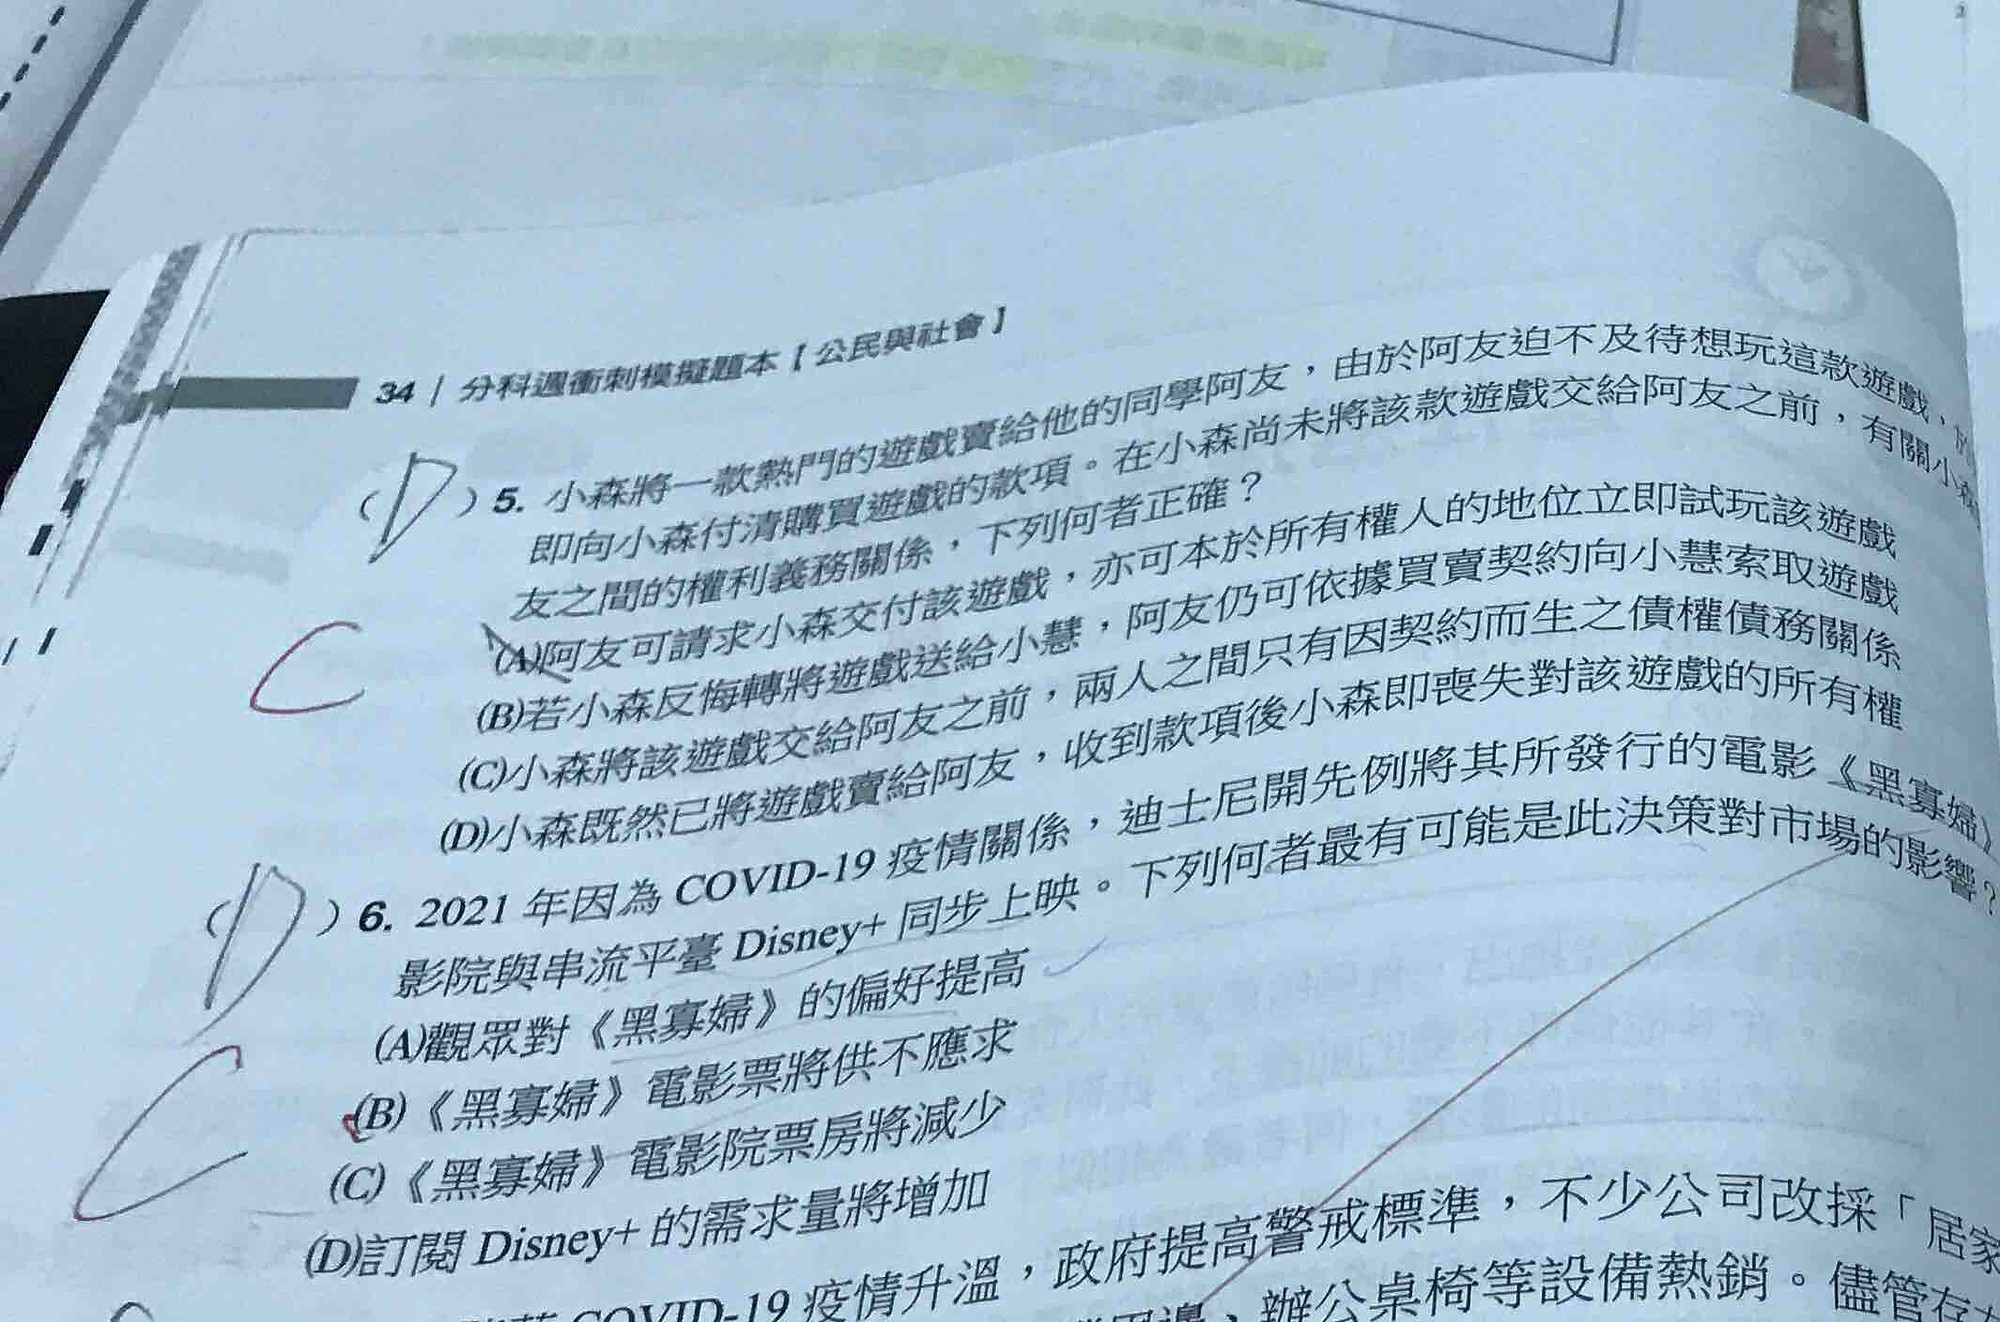 34 | 分科週衝刺模擬題本【公民與社會】
(D) 5. 小森將一款熱門的遊戲賣給他的同學阿友，由於阿友迫不及待想玩這款遊戲，
即向小森付清購買遊戲的款項。在小森尚未將該款遊戲交給阿友之前，有關小森
友之間的權利義務關係，下列何者正確？
(A)阿友可請求小森交付該遊戲，亦可本於所有權人的地位立即試玩該遊戲
(B)若小森反悔轉將遊戲送給小慧，阿友仍可依據買賣契約向小慧索取遊戲
C
(C)小森將該遊戲交給阿友之前，兩人之間只有因契約而生之債權債務關係
(D)小森既然已將遊戲賣給阿友，收到款項後小森即喪失對該遊戲的所有權
(D) 6. 2021 年因為 COVID-19 疫情關係，迪士尼開先例將其所發行的電影《黑寡婦》
影院與串流平臺 Disney+ 同步上映。下列何者最有可能是此決策對市場的影響？
(A)觀眾對《黑寡婦》的偏好提高
(B)《黑寡婦》電影票將供不應求
C
(C)《黑寡婦》電影院票房將減少
(D)訂閱 Disney+ 的需求量將增加
COVID-19 疫情升溫，政府提高警戒標準，不少公司改採「居家
、辦公桌椅等設備熱銷。儘管存